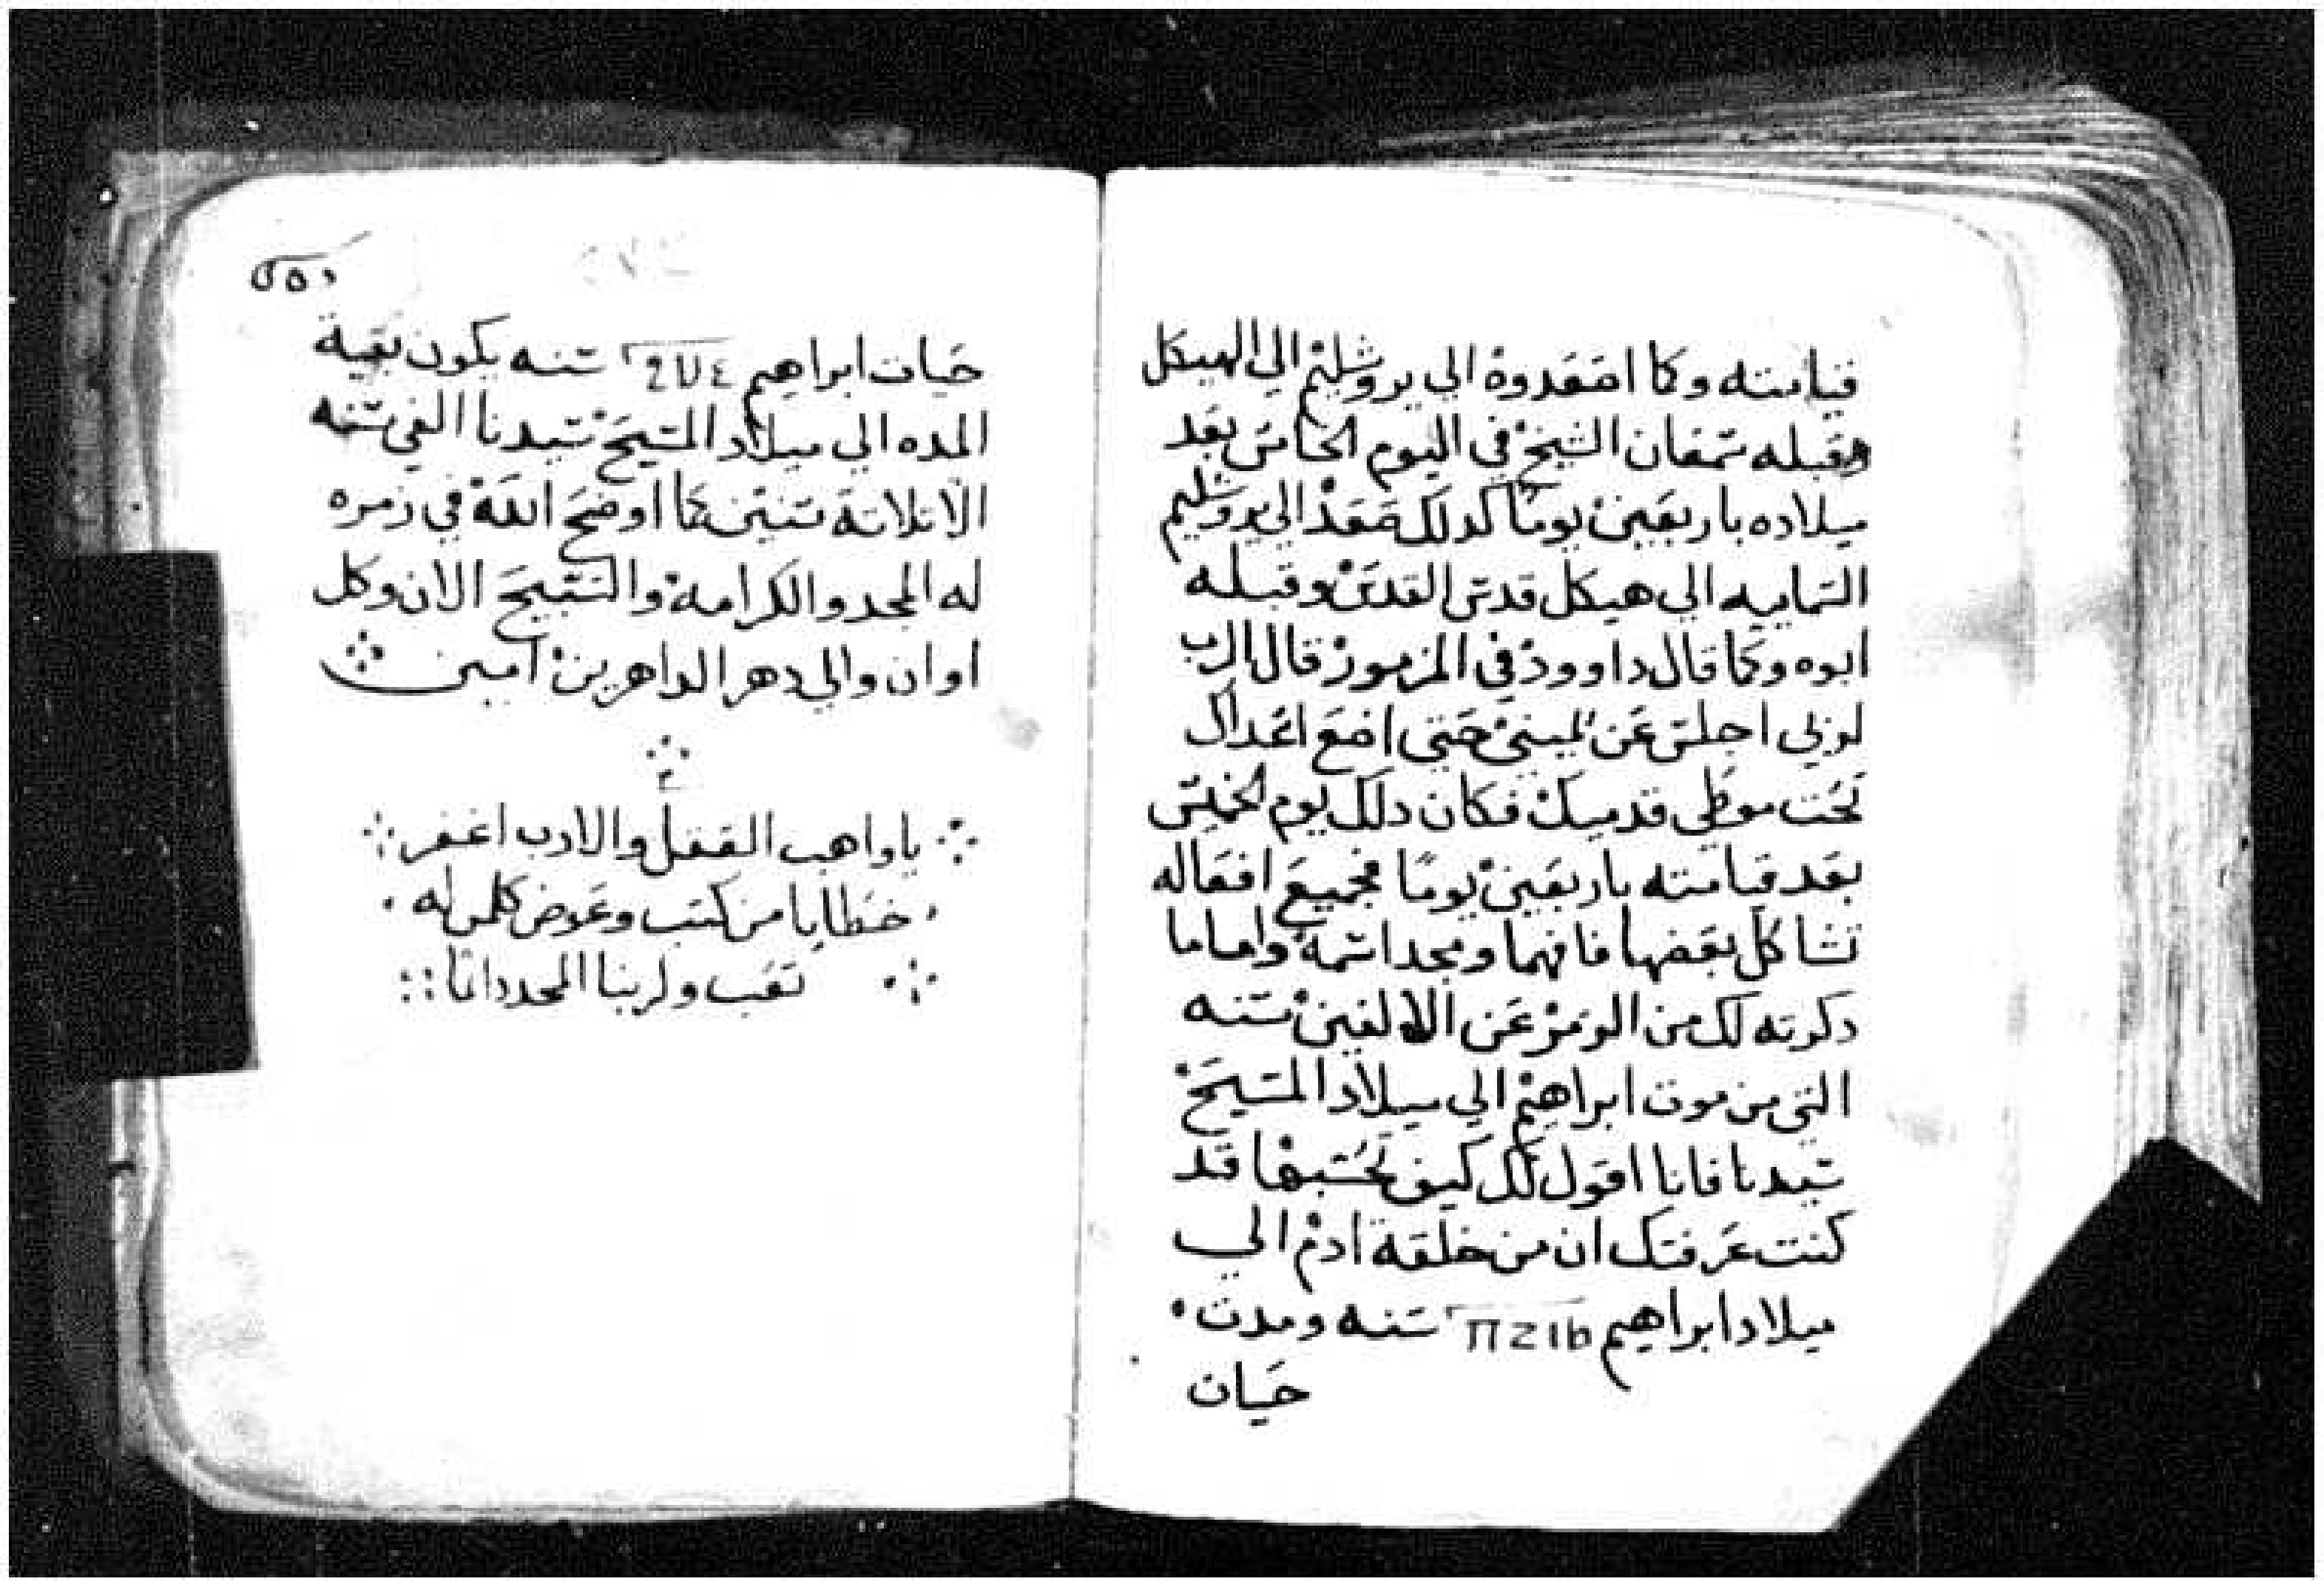 قيامته وكما اصعدوه الي يروشليم الي الهيكل
وقبله سمعان الشيخ في اليوم الخامس بعد
ميلاده باربعين يوما كدلك صعد الي يروشليم
السماييه الي هيكل قدس القدس وقبله
ابوه وكما قال داوود في المزمور قال الرب
لربي اجلس عن يميني حتي اضع اعداك
تحت موطي قدميك فكان دلك يوم الخميس
بعد قيامته باربعين يوما فجميع افعاله
تشاكل بعضها فافهما ومجد اسمه واما ما
دكرته لك من الرمز عن الالفين سنه
التي من موت ابراهيم الي ميلاد المسيح
سيدنا فانا اقول لك كيف تحسبها قد
كنت عرفتك ان من خلقة ادم الي
ميلاد ابراهيم سنه ومدت
حيات
حيات ابراهيم سنه يكون بقية
المده الي ميلاد المسيح سيدنا الفي سنه
الا تلاتة سنين كما اوضح الله في رمزه
له المجد والكرامه والتسبيح الان وكل
اوان والي دهر الداهرين امين
يا واهب العقل والادب اغفر
خطايا من كتب وعوض كلمن له
تعب ولربنا المجد دايما